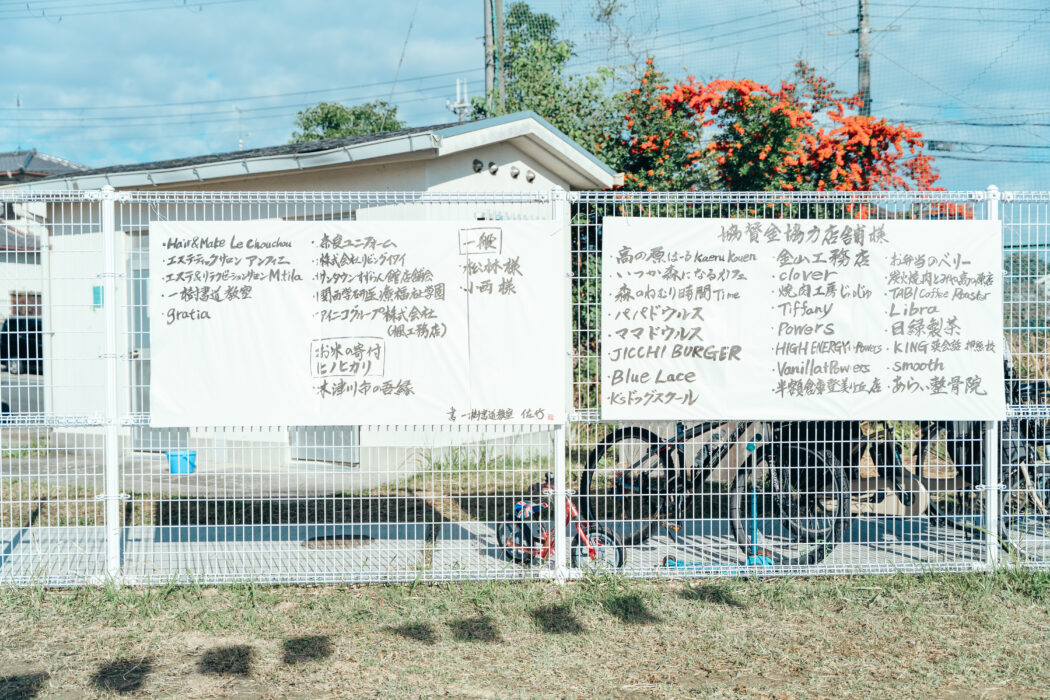 ・Hair&Make Le Chouchou
・エステティックサロン アンフィニ
・エステ&リラクゼーションサロン Mtila
・一樹書道教室
・gratia
・奈良ユニフォーム
・株式会社リビングアイ
・関西学研医療福祉学園
・アイニコグループ株式会社
(楓工務店)
お米の寄付
ヒノヒカリ
・木津川市の吾縁
一般
・松林様
・小西様
書 一樹書道教室 佐竹
協賛金協力店舗様
・高の原はーぶ Kaeru Kouen
・いつか森になるカフェ
・森のねむり時間Time
・パパドウルス
・ママドウルス
・JICCHI BURGER
・Blue Lace
・K'sドッグスクール
・金山工務店
・clover
・焼肉工房じゅじゅ
・Tiffany
・Powers
・HIGH ENERGY・Powers
・Vanilla+Powers
・半額倉庫登美ヶ丘店
・お弁当のベリー
・TABI Coffee Roaster
・Libra
・日緑製茶
・KING 英会話 押熊校
・smooth
・あらい整骨院